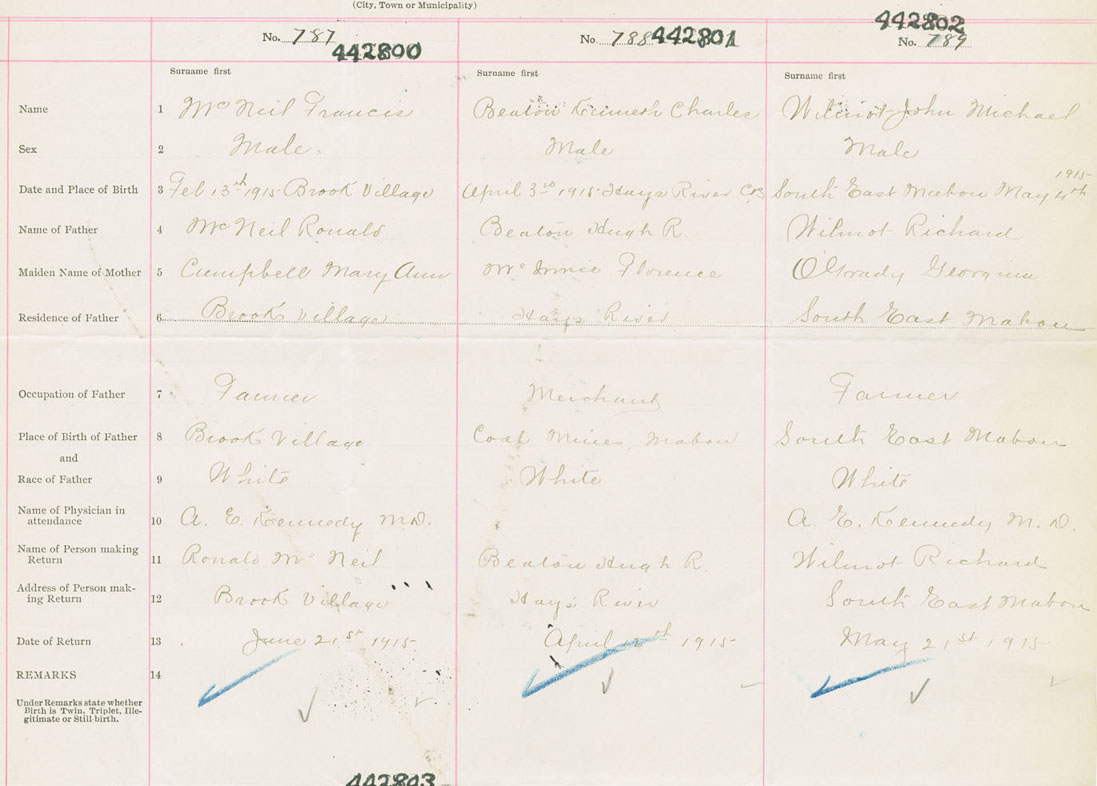 (City, Town or Municipality)
No. 787 442800 No. 788 442801 442802 No. 789
Surname first Surname first Surname first
Name 1 McNeil Francis Beaton Kenneth Charles Wilmot John Michael
Sex 2 Male. Male Male
1915
Date and Place of Birth 3 Feb 13rd 1915 Brook Village April 3rd 1915 Hays River C.B South East Mabou May 4th
Name of Father 4 McNeil Ronald Beaton Hugh R. Wilmot Richard
Maiden Name of Mother 5 Campbell Mary Ann McInnis Florence O'Grady Georgina
Residence of Father 6 Brook Village Hays River South East Mabou
Occupation of Father 7 Farmer Merchant Farmer
Place of Birth of Father 8 Brook Village Coal Mines Mabou South East Mabou
and
Race of Father 9 White White White
Name of Physician in
attendance 10 A. E. Kennedy M.D. A. E. Kennedy M.D.
Name of Person making
Return 11 Ronald McNeil Beaton Hugh R. Wilmot Richard
Address of Person mak-
ing Return 12 Brook Village Hays River South East Mabou
Date of Return 13 June 21st 1915 April th 1915 May 21st 1915
REMARKS 14
Under Remarks state whether
Birth is Twin, Triplet, Ille-
gitimate or Still birth.
442803